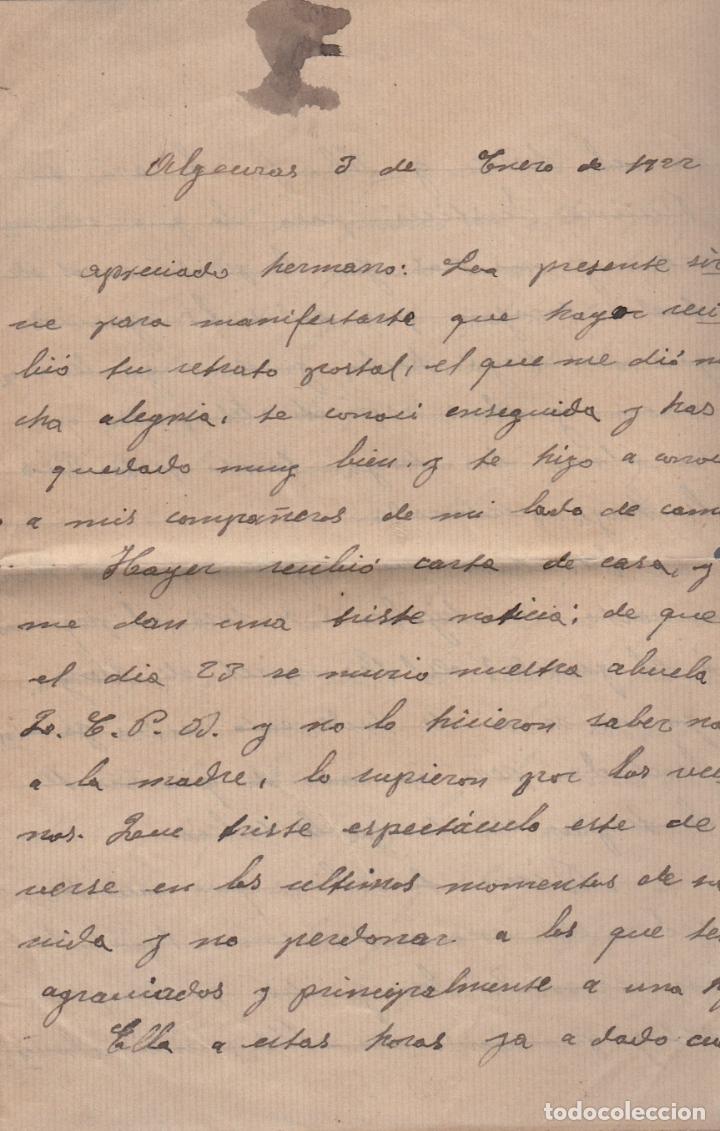 Algeciras 3 de Enero de 1922
apreciado hermano: La presente sir
ve para manifertarte que hayer reci
bió tu retrato postal, el que me dió m
cha alegria, te conoci enseguida y has
quedado muy bien. y te hizo a conoc
a mis compañeros de mi lado de cam
Hayer recibió carta de casa, y
me dan una triste noticia; de que
el dia 23 se murio nuestra abuela
Q. E. P. D. y no lo hicieron saber na
a la madre, lo supieron por los veci
nos. Que triste espectáculo este de
verse en los ultimos momentos de su
vida y no perdonar a los que te
agraviados y principalmente a una
Ella a estas horas ya a dado cu
todocoleccion